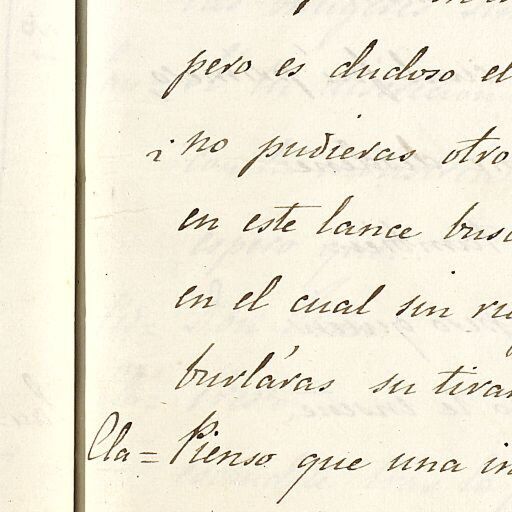 pero es dudoso el
¿no pudieras otro
en este lance busc
en el cual sin rie
burláras su tiran
Cla= Pienso que una in